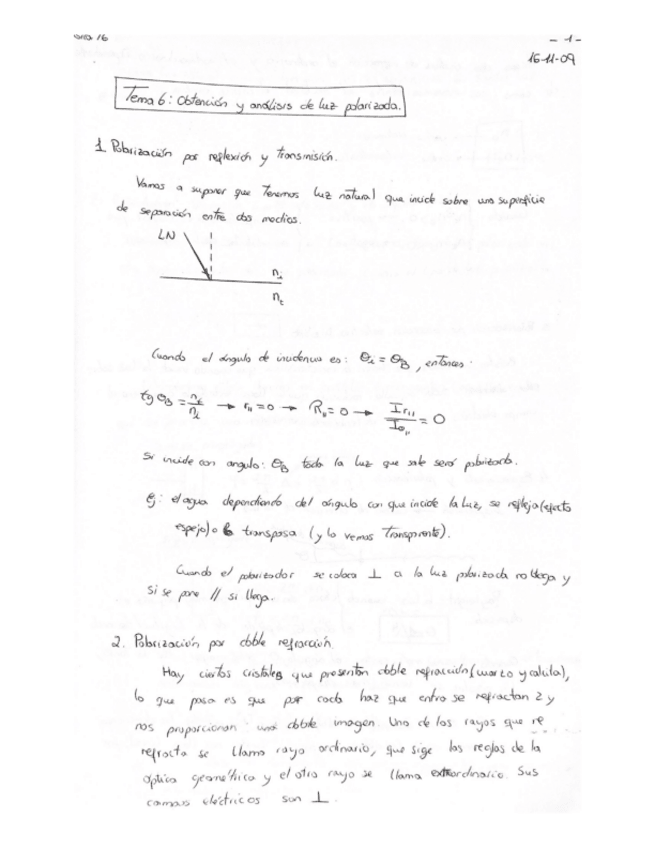 16
- 1 -
16-11-09
Tema 6: Obtención y análisis de luz polarizada.
1. Polarización por reflexión y transmisión.
Vamos a suponer que tenemos luz natural que incide sobre una superficie
de separación entre dos medios.
LN
ni
nt
Cuando el ángulo de incidencia es: θi = θB, entonces.
tg θB = nt/ni → r11 = 0 → R11 = 0 → Ir11/Io11 = 0
Si incide con angulo: θB toda la luz que sale será polarizada.
Ej: el agua dependiendo del ángulo con que incide la luz, se refleja (efecto
espejo) o la transpasa (y lo vemos transparente).
Cuando el polarizador se coloca ⊥ a la luz polarizada no llega y
si se pone // si llega.
2. Polarización por doble refracción.
Hay ciertos cristales que presentan doble refracción (cuarzo y calcita),
lo que pasa es que por cada haz que entra se refractan 2 y
nos proporcionan una doble imagen. Uno de los rayos que re
refracta se llama rayo ordinario, que sige las reglas de la
óptica geométrica y el otro rayo se llama extraordinario. Sus
campos eléctricos son ⊥.